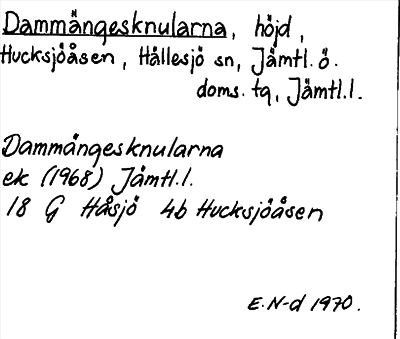 Dammångesknularna, höjd,
Hucksjöåsen, Hällesjö sn, Jämtl. ö.
doms. tg, Jämtl. l.
Dammångesknularna
ek (1968) Jämtl. l.
18 G Håsjö 4b Hucksjöåsen
E. N-d 1970.